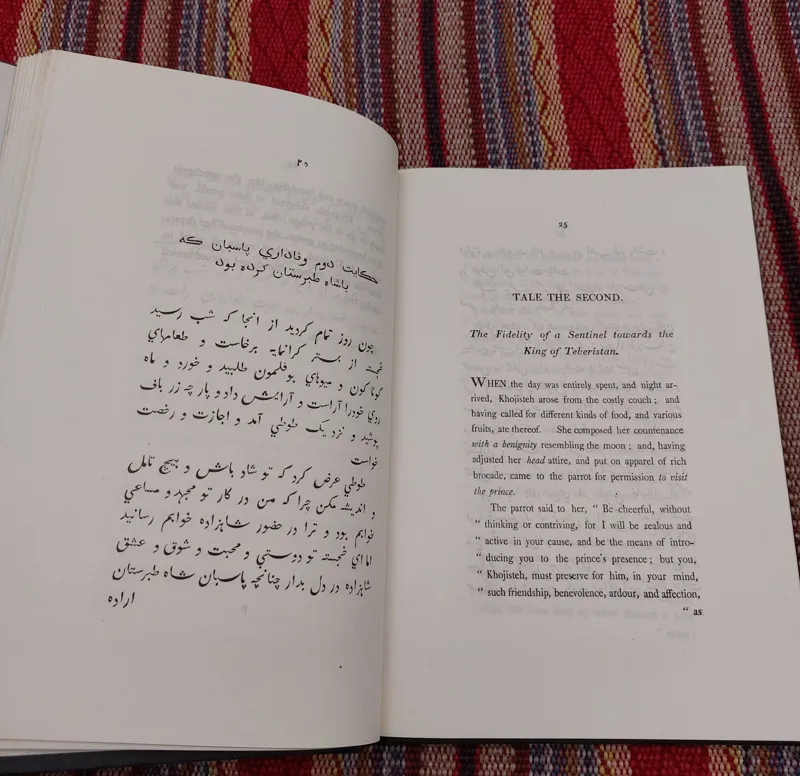 ۲۰
حکایت دوم وفاداري پاسبان که
باشاه طبرستان کرده بود
چون روز تمام کردید از انجا که شب رسید
خجسته از بستر کرانمایه برخاست و طعامهاي
کوناکون و میوهاي بوقلمون طلبید و خورد و ماه
روي خودرا آراست و آرایش داد و پارچه زر باف
پوشید و نزدیک طوطي آمد و اجازت و رخصت
خواست
طوطي عرض کرد که تو شاد باش و هیچ تامل
و اندیشه مکن چرا که من در کار تو مجهد و مساعي
خواهم بود و ترا در حضور شاهزاده خواهم رسانید
اما اي خجسته تو دوستي و محبت و شوق و عشق
شاهزاده در دل بدار چنانچه پاسبان شاه طبرستان
اراده
25
TALE THE SECOND.
The Fidelity of a Sentinel towards the
King of Teberistan.
WHEN the day was entirely spent, and night ar-
rived, Khojisteh arose from the costly couch; and
having called for different kinds of food, and various
fruits, ate thereof. She composed her countenance
with a benignity resembling the moon; and, having
adjusted her head attire, and put on apparel of rich
brocade, came to the parrot for permission to visit
the prince.
The parrot said to her, “ Be cheerful, without
“ thinking or contriving, for I will be zealous and
“ active in your cause, and be the means of intro-
“ ducing you to the prince's presence; but you,
“ Khojisteh, must preserve for him, in your mind,
“ such friendship, benevolence, ardour, and affection,
“ as